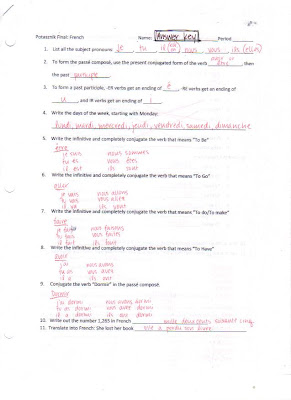 Potasznik Final: French Name: Answer Key Period
1. List all the subject pronouns: je, tu, il, nous, vous, ils (elles)
2. To form the passé composé, use the present conjugated form of the verb avoir, then
the past participle.
3. To form a past participle, -ER verbs get an ending of é, -RE verbs get an ending of
u, and -IR verbs get an ending of i.
4. Write the days of the week, starting with Monday:
lundi, mardi, mercredi, jeudi, vendredi, samedi, dimanche
5. Write the infinitive and completely conjugate the verb that means "To Be"
être
je suis nous sommes
tu es vous êtes
il est ils sont
6. Write the infinitive and completely conjugate the verb that means "To Go"
aller
je vais nous allons
tu vas vous allez
il va ils vont
7. Write the infinitive and completely conjugate the verb that means "To do/To make"
faire
je fais nous faisons
tu fais vous faites
il fait ils font
8. Write the infinitive and completely conjugate the verb that means "To Have"
avoir
j'ai nous avons
tu as vous avez
il a ils ont
9. Conjugate the verb "Dormir" in the passé composé.
Dormir
j'ai dormi nous avons dormi
tu as dormi vous avez dormi
il a dormi ils ont dormi
10. Write out the number 1,265 in French mille deux cents soixante cinq
11. Translate into French: She lost her book elle a perdu son livre